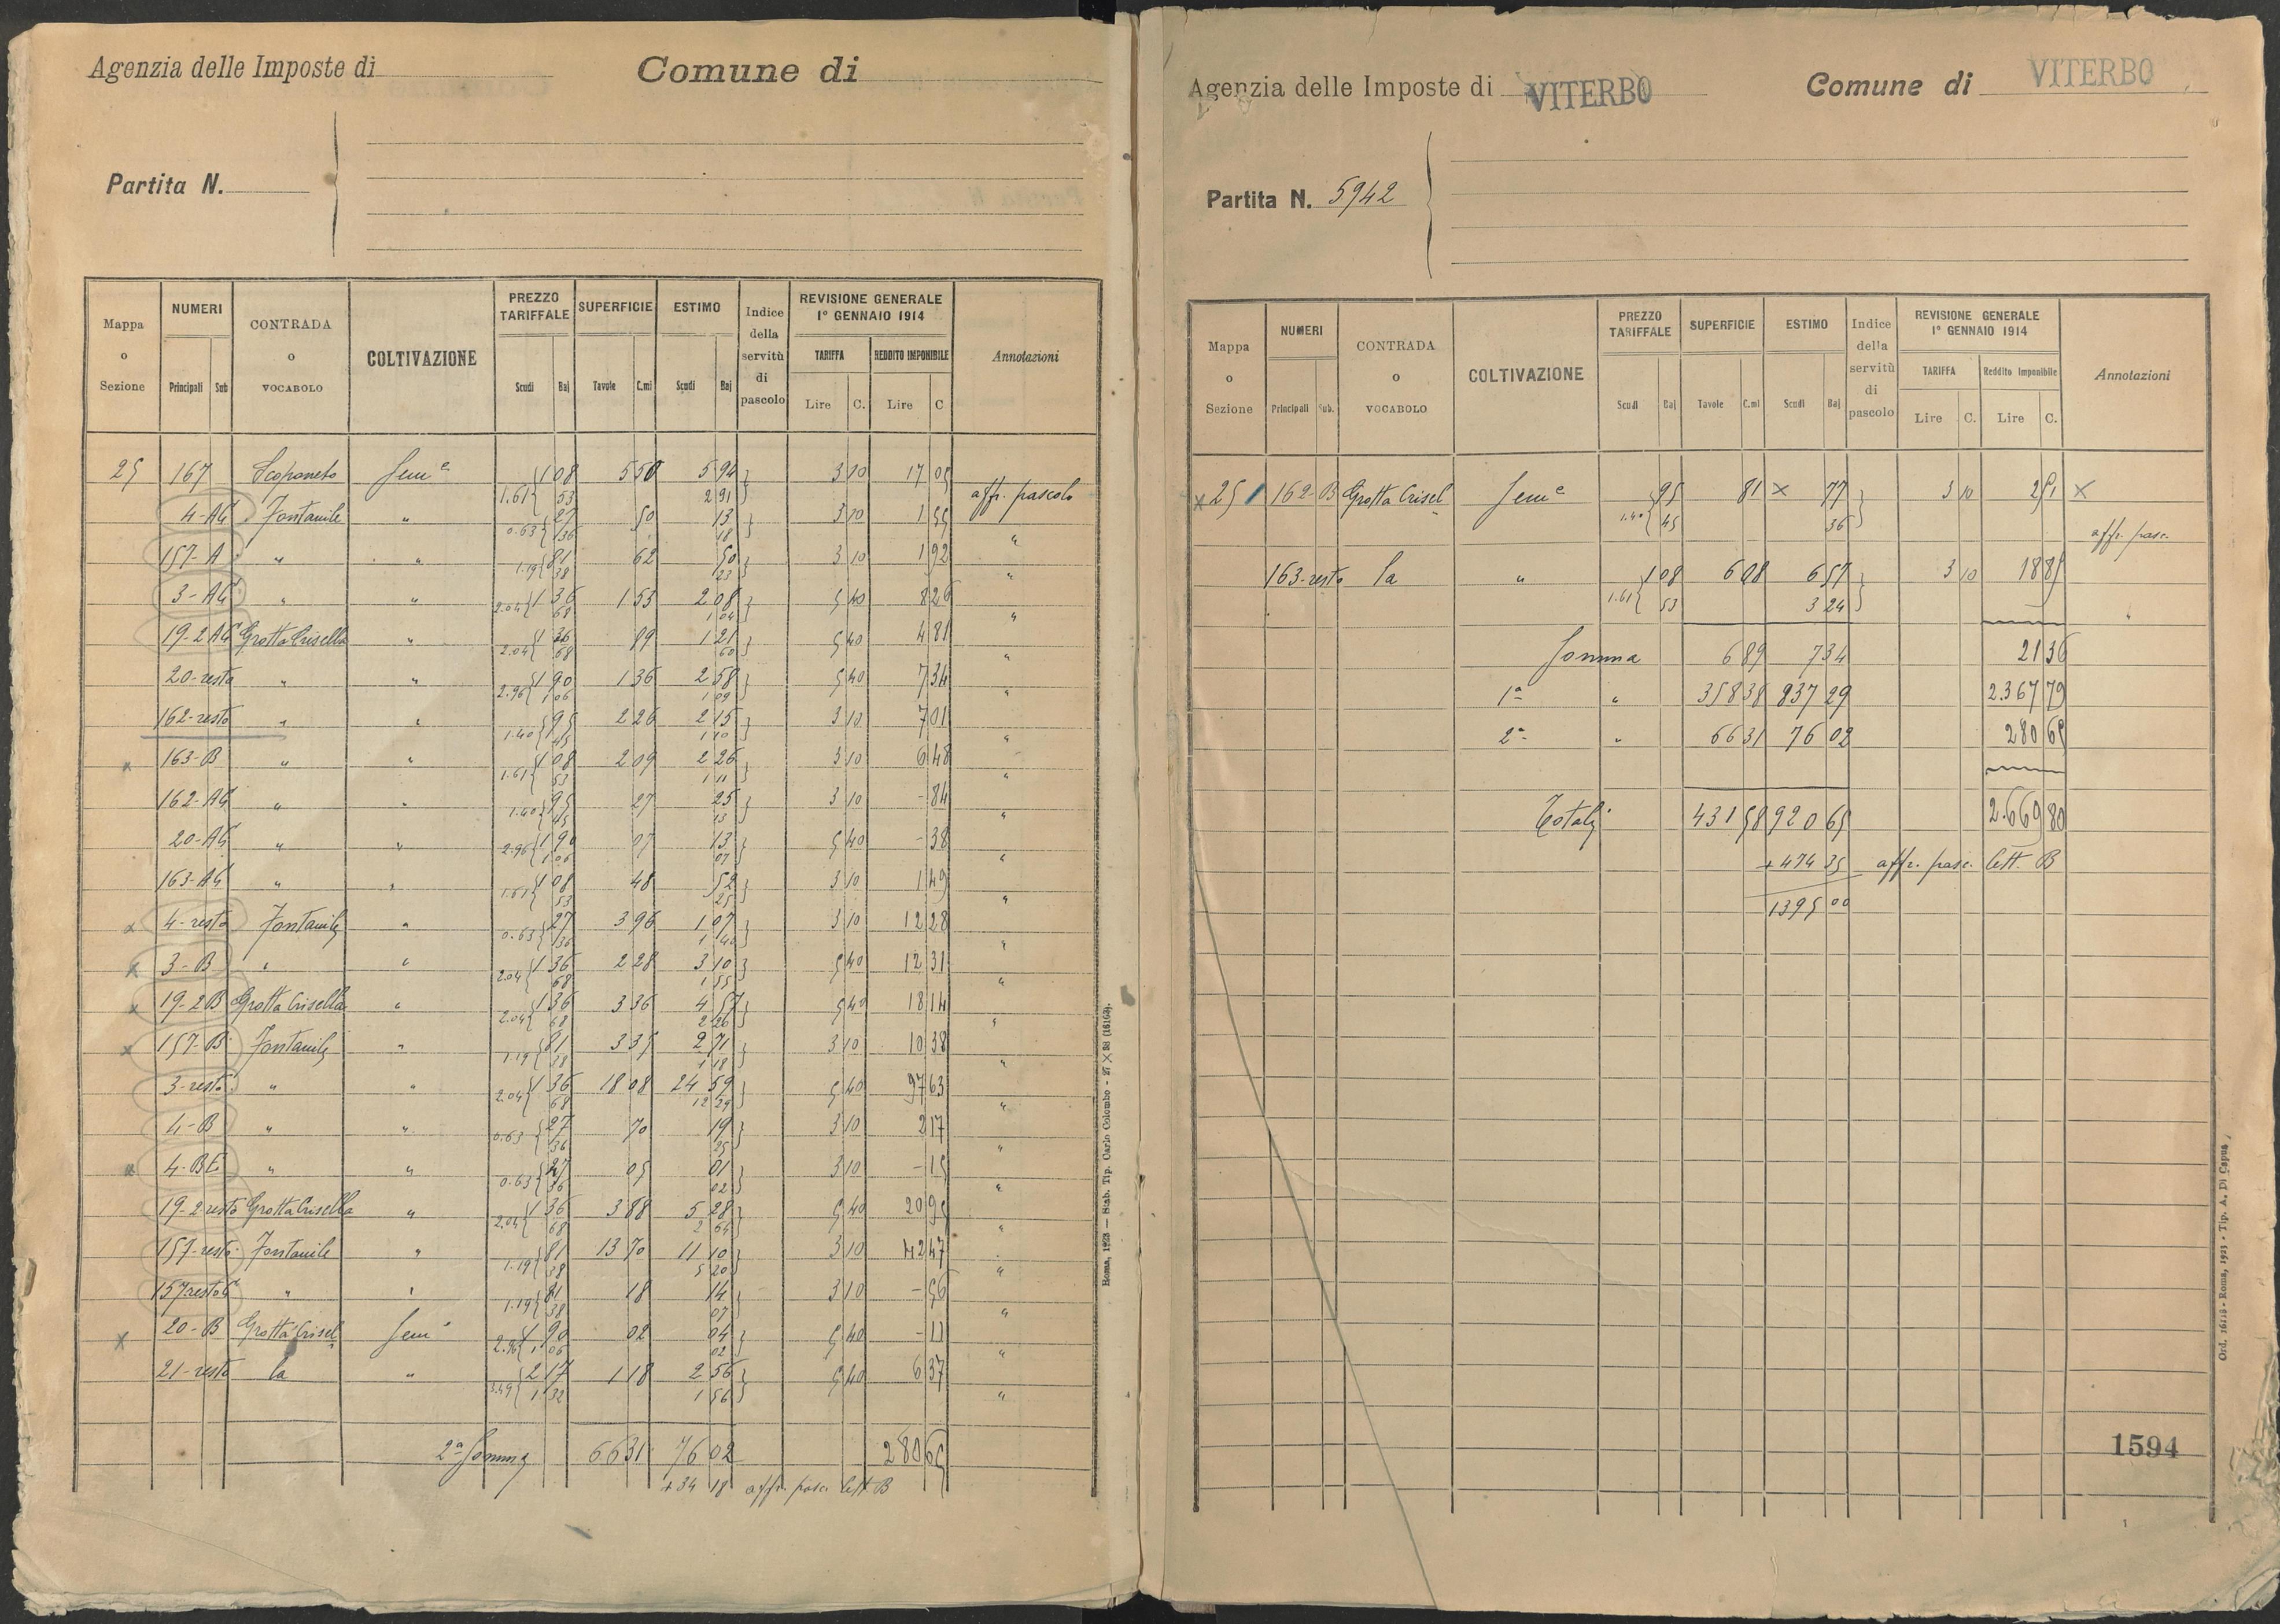 Agenzia delle Imposte di Comune di
Partita N.
Mappa o Sezione NUMERI Principali Sub CONTRADA o VOCABOLO COLTIVAZIONE PREZZO TARIFFALE Scudi Baj SUPERFICIE Tavole C.mi ESTIMO Scudi Baj Indice della servitù di pascolo REVISIONE GENERALE 1° GENNAIO 1914 TARIFFA Lire C. REDDITO IMPONIBILE Lire C Annotazioni
25 167 Scoponeto Seme 1 08 5 50 5 94 3 10 17 05
1.61 53 2 91 affr. pascolo
4-AG Fontanile " 27 50 13 3 10 1 55
0.63 36 18 "
157-A " " 81 62 50 3 10 1 92
1.19 38 23 "
3-AG " " 1 36 1 53 2 08 5 40 8 26
2.04 68 1 04 "
19-2 AG Grotta Crisella " 1 36 89 1 21 5 40 4 81
2.04 68 60 "
20-resto " " 1 90 1 36 2 58 5 40 7 34
2.96 1 06 1 09 "
162-resto " " 95 2 26 2 15 3 10 7 01
1.40 45 1 10 "
x 163-B " " 1 08 2 09 2 26 3 10 6 48
1.61 53 1 11 "
162-AG " " 95 27 25 3 10 - 84
1.40 45 13 "
20-AG " " 1 90 07 13 5 40 - 38
2.96 1 06 07 "
163-AG " " 1 08 48 52 3 10 1 49
1.61 53 25 "
x 4-resto Fontanile " 27 3 96 1 07 3 10 12 28
0.63 36 1 40 "
x 3-B " " 1 36 2 28 3 10 5 40 12 31
2.04 68 1 55 "
x 19-2 B Grotta Crisella " 1 36 3 36 4 57 5 40 18 14
2.04 68 2 26 "
x 157-B Fontanile " 81 3 35 2 71 3 10 10 38
1.19 38 1 18 "
3-resto " " 1 36 18 08 24 59 5 40 97 63
2.04 68 12 29 "
4-B " " 27 70 19 3 10 2 17
0.63 36 25 "
x 4-BE " " 27 05 01 3 10 - 15
0.63 36 02 "
19-2 resto Grotta Crisella " 1 36 3 88 5 28 5 40 20 95
2.04 68 2 64 "
157-resto Fontanile " 81 13 70 11 10 3 10 42 47
1.19 38 5 20 "
157 resto " " 81 18 14 3 10 - 56
1.19 38 07 "
x 20-B Grotta Crisel Seme 1 90 02 04 5 40 - 11
2.96 1 06 02 "
21-resto la " 2 17 1 18 2 56 5 40 6 37
3.49 1 32 1 56 "
2a Somma 66 31 76 02 280 65
+ 34 18 affr. pasc. lett. B
Roma, 1923 — Stab. Tip. Carlo Colombo - 27 × 38 (16163).
Agenzia delle Imposte di VITERBO Comune di VITERBO
Partita N. 5942
Mappa o Sezione NUMERI Principali Sub. CONTRADA o VOCABOLO COLTIVAZIONE PREZZO TARIFFALE Scudi Baj SUPERFICIE Tavole C.mi ESTIMO Scudi Baj Indice della servitù di pascolo REVISIONE GENERALE 1° GENNAIO 1914 TARIFFA Lire C. Reddito Imponibile Lire C. Annotazioni
x 25 162-B Grotta Crisel Seme 95 81 x 77 3 10 2 51 x
1.40 45 36 affr. pasc.
163-resto la " 1 08 6 08 6 57 3 10 18 85
1.61 53 3 24 "
Somma 6 89 7 34 21 36
1a " 358 38 837 29 2367 79
2a " 66 31 76 02 280 65
Totali 431 58 920 65 2.669 80
+ 474 35 affr. pasc. lett. B
1395 00
1594
Ord. 16418 - Roma, 1923 - Tip. A. Di Capua